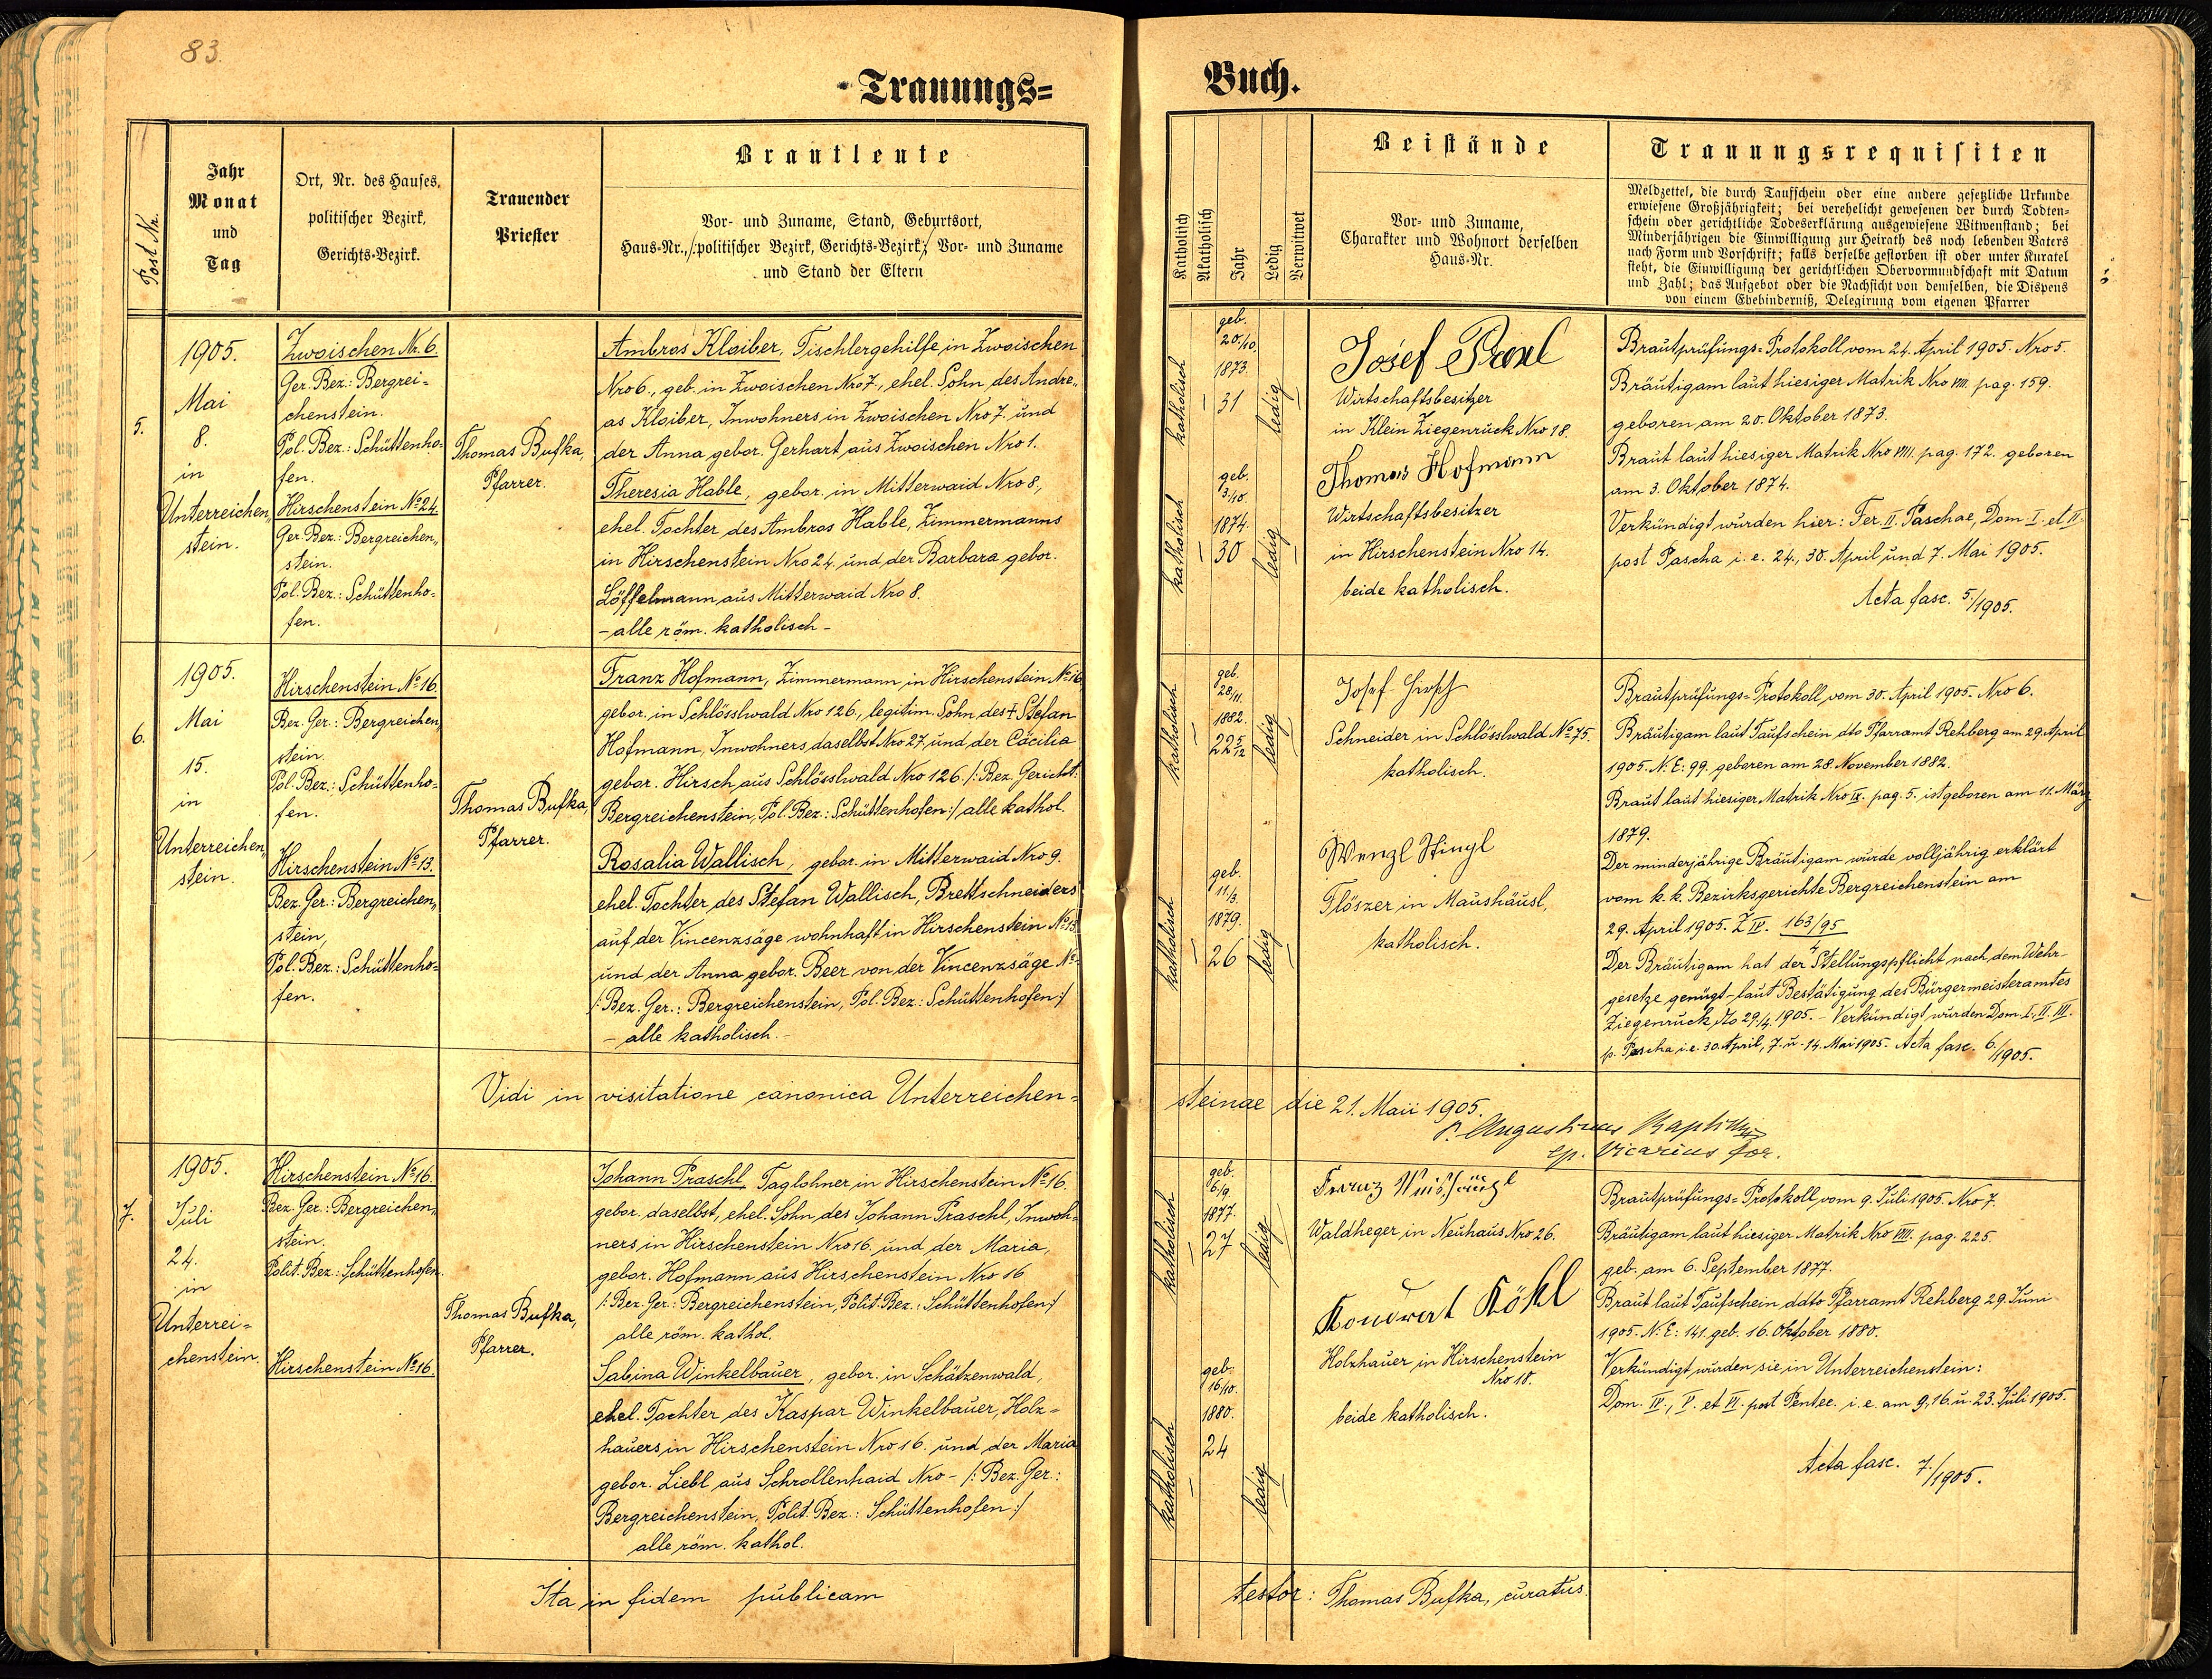 83.
Trauungs=
Post Nr.
Jahr
Monat
und
Tag
Ort, Nr. des Hauses,
politischer Bezirk,
Gerichts-Bezirk.
Trauender
Priester
Brautleute
Vor- und Zuname, Stand, Geburtsort,
Haus-Nr., /: politischer Bezirk, Gerichts-Bezirk :/ Vor- und Zuname
und Stand der Eltern
5.
1905.
Mai
8.
in
Unterreichen„
stein.
Zwoischen Nr. 6.
Ger. Bez.: Bergrei=
chenstein.
Pol. Bez.: Schüttenho=
fen.
Hirschenstein No 24.
Ger. Bez.: Bergreichen„
stein.
Pol. Bez.: Schüttenho=
fen.
Thomas Bufka,
Pfarrer.
Ambros Kloiber, Tischlergehilfe in Zwoischen
Nro 6., geb. in Zwoischen Nro 7., ehel. Sohn des Andre„
as Kloiber, Inwohners in Zwoischen Nro 7. und
der Anna gebor. Gerhart aus Zwoischen Nro 1.
Theresia Hable, gebor. in Mitterwaid Nro 8.,
ehel. Tochter des Ambros Hable, Zimmermanns
in Hirschenstein Nro 24. und der Barbara gebor.
Löffelmann aus Mitterwaid Nro 8.
- alle röm. katholisch -
6.
1905.
Mai
15.
in
Unterreichen„
stein.
Hirschenstein No 16.
Bez. Ger.: Bergreichen„
stein.
Pol. Bez.: Schüttenho=
fen.
Hirschenstein No 13.
Bez. Ger.: Bergreichen„
stein,
Pol. Bez.: Schüttenho=
fen.
Thomas Bufka,
Pfarrer.
Franz Hofmann, Zimmermann in Hirschenstein No 16,
gebor. in Schlösslwald Nro 126., legitim. Sohn des † Stefan
Hofmann, Inwohners daselbst Nro 27. und der Cäcilia
gebor. Hirsch aus Schlösslwald Nro 126. /: Bez. Gericht:
Bergreichenstein, Pol. Bez.: Schüttenhofen :/ alle kathol.
Rosalia Wallisch, gebor. in Mitterwaid Nro 9.
ehel. Tochter des Stefan Wallisch, Brettschneiders
auf der Vincenzsäge wohnhaft in Hirschenstein No 13.
und der Anna gebor. Beer von der Vincenzsäge No -
/: Bez. Ger.: Bergreichenstein, Pol. Bez.: Schüttenhofen :/
- alle katholisch. -
Vidi in visitatione canonica Unterreichen=
7.
1905.
Juli
24.
in
Unterrei=
chenstein.
Hirschenstein No 16.
Bez. Ger.: Bergreichen„
stein.
Polit. Bez.: Schüttenhofen.
Hirschenstein No 16.
Thomas Bufka,
Pfarrer.
Johann Praschl, Taglohner in Hirschenstein No 16
gebor. daselbst, ehel. Sohn des Johann Praschl, Inwoh=
ners in Hirschenstein Nro 16. und der Maria,
gebor. Hofmann aus Hirschenstein Nro 16
/: Bez. Ger.: Bergreichenstein, Polit. Bez.: Schüttenhofen :/
alle röm. kathol.
Sabina Winkelbauer, gebor. in Schätzenwald,
ehel. Tochter des Kaspar Winkelbauer, Holz=
hauers in Hirschenstein Nro 16. und der Maria
gebor. Liebl aus Schrollenhaid Nro - /: Bez. Ger.:
Bergreichenstein, Polit. Bez.: Schüttenhofen :/
alle röm. kathol.
Ita in fidem publicam
Buch.
Katholisch
Akatholisch
Jahr
Ledig
Verwitwet
Beistände
Vor- und Zuname,
Charakter und Wohnort derselben
Haus-Nr.
Trauungsrequisiten
Meldzettel, die durch Taufschein oder eine andere gesetzliche Urkunde
erwiesene Großjährigkeit; bei verehelicht gewesenen der durch Todten-
schein oder gerichtliche Todeserklärung ausgewiesene Witwenstand; bei
Minderjährigen die Einwilligung zur Heirath des noch lebenden Vaters
nach Form und Vorschrift; falls derselbe gestorben ist oder unter Kuratel
steht, die Einwilligung der gerichtlichen Obervormundschaft mit Datum
und Zahl; das Aufgebot oder die Nachsicht von demselben, die Dispens
von einem Ehehinderniß, Delegirung vom eigenen Pfarrer
katholisch
geb.
20./10.
1873.
31
ledig
katholisch
geb.
3./10.
1874.
30
ledig
Josef
Wirtschaftsbesitzer
in Klein Ziegenruck Nro 18.
Thomas Hofmann
Wirtschaftsbesitzer
in Hirschenstein Nro 14.
beide katholisch.
Brautprüfungs=Protokoll vom 24. April 1905. Nro 5.
Bräutigam laut hiesiger Matrik Nro VIII. pag. 159.
geboren am 20. Oktober 1873.
Braut laut hiesiger Matrik Nro VIII. pag. 172. geboren
am 3. Oktober 1874.
Verkündigt wurden hier: Fer. II. Paschae, Dom. I. et II.
post Pascha i. e. 24., 30. April und 7. Mai 1905.
Acta fasc. 5./1905.
katholisch
geb.
28/11.
1882.
22 5/12
ledig
katholisch
geb.
11./3.
1879.
26
ledig
Josef Hirsch
Schneider in Schlösslwald No 75.
katholisch.
Wenzl Stingl
Flöszer in Maushäusl,
katholisch.
Brautprüfungs=Protokoll vom 30. April 1905. Nro 6.
Bräutigam laut Taufschein dto Pfarramt Rehberg am 29. April
1905. N. E: 99. geboren am 28. November 1882.
Braut laut hiesiger Matrik Nro IX. pag. 5. ist geboren am 11. März
1879.
Der minderjährige Bräutigam wurde volljährig erklärt
vom k. k. Bezirksgerichte Bergreichenstein am
29. April 1905. Z IV. 163/95
4
Der Bräutigam hat der Stellungspflicht nach dem Wehr-
gesetze genügt - laut Bestätigung des Bürgermeisteramtes
Ziegenruck dto 29./4. 1905. - Verkündigt wurden Dom. I., II. III.
p. Pascha i. e. 30. April, 7. u. 14. Mai 1905. Acta fasc. 6./1905.
steinae die 21. Maii 1905.
P. Augustinus
ep. Vicarius for.
katholisch
geb.
6./9.
1877.
27
ledig
katholisch
geb.
16/10.
1880.
24
ledig
Franz
Waldheger in Neuhaus Nro 26.
Konrad
Holzhauer in Hirschenstein
Nro 18.
beide katholisch.
Brautprüfungs=Protokoll vom 9. Juli 1905. Nro 7.
Bräutigam laut hiesiger Matrik Nro VIII. pag. 225.
geb. am 6. September 1877.
Braut laut Taufschein ddto Pfarramt Rehberg 29. Juni
1905. N. E: 141. geb. 16. Oktober 1880.
Verkündigt wurden sie in Unterreichenstein:
Dom. IV., V. et VI. post Pentec. i. e. am 9., 16. u. 23. Juli 1905.
Acta fasc. 7./1905.
testor: Thomas Bufka, curatus.